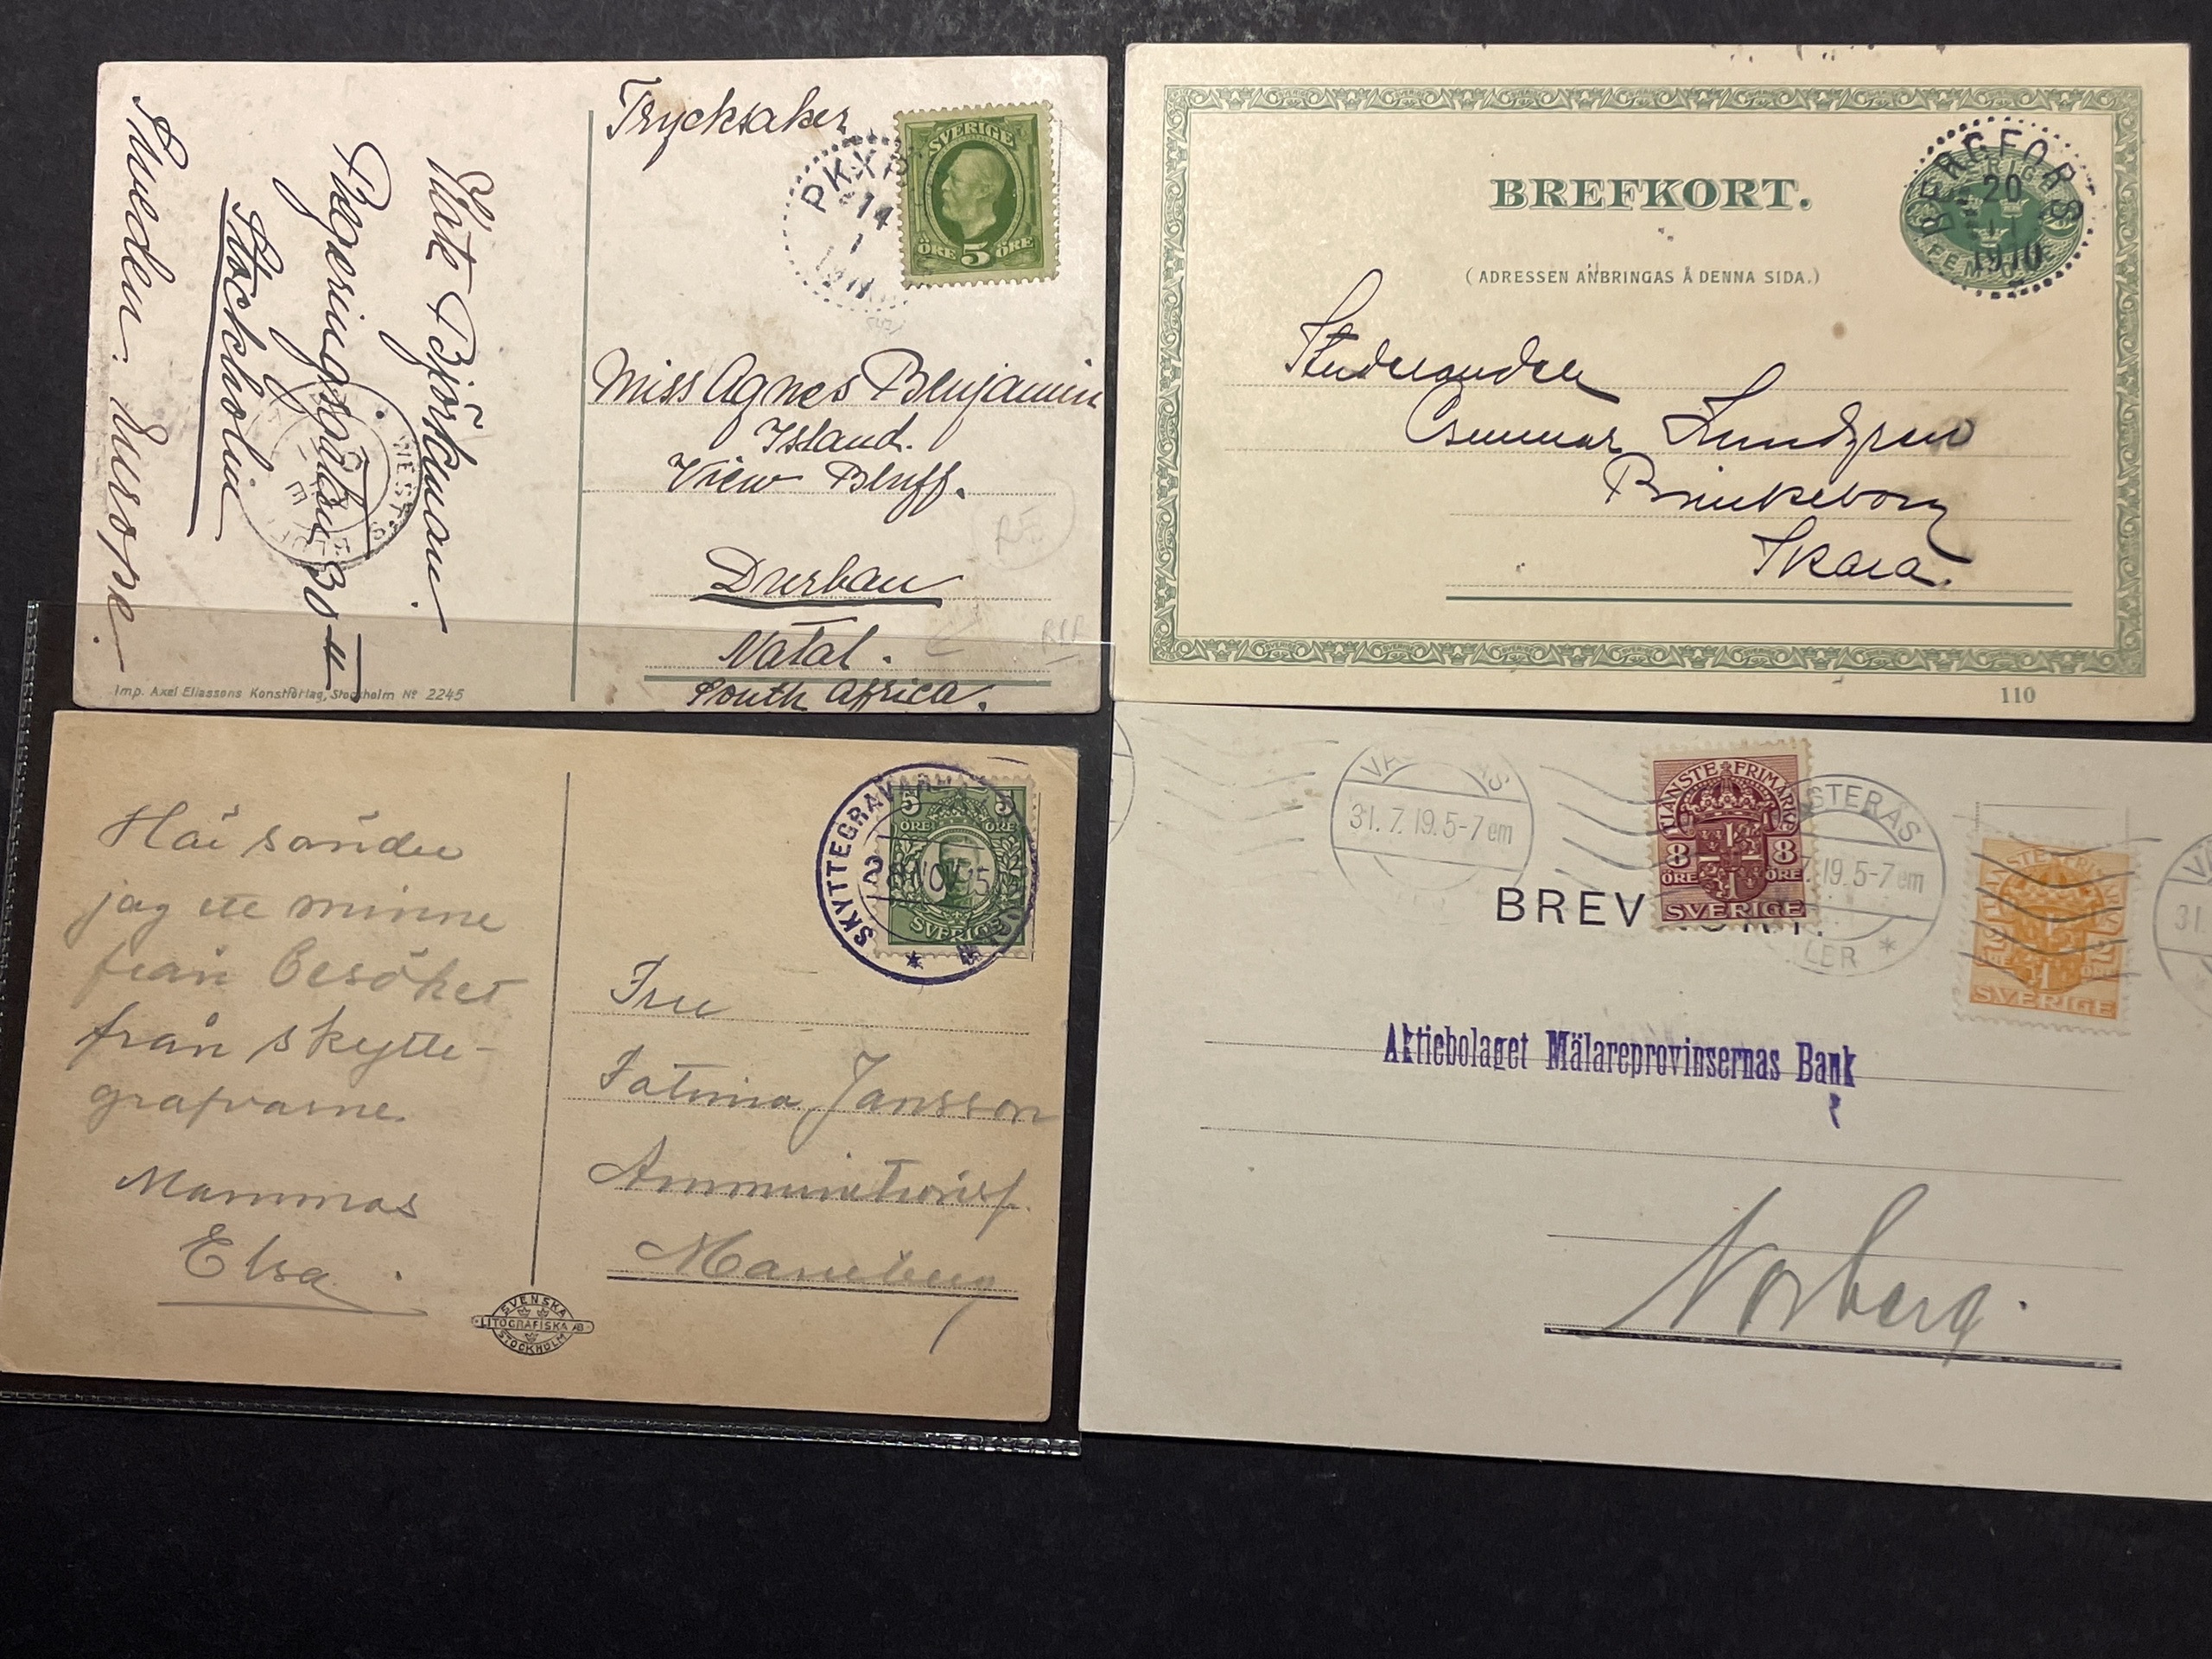 Trycksaker
SVERIGE
ÖRE 5 ÖRE
PKXP
14
1
Miss Agnes Benjamin
Island.
View Bluff.
Durban
Natal.
South Africa.
Kate Björkman
Regeringsgatan 30 II
Stockholm
Sweden. Europe.
Imp. Axel Eliassons Konstförlag, Stockholm No 2245
BREFKORT.
(ADRESSEN ANBRINGAS Å DENNA SIDA.)
BERGFORS
20
1
1910
Studeranden
Gunnar Lundgren
Brinkeborg
Skara.
110
Här sänder
jag ett minne
från besöket
från skytte-
grafvarne.
Mammas
Elsa
SVENSKA
LITOGRAFISKA AB
STOCKHOLM
SKYTTEGRAVARNA
2 NOV 15
5 5
ÖRE ÖRE
SVERIGE
Fru
Fatima Jansson
Ammunitionsf.
Marieberg
VÄSTERÅS
31.7.19.5-7em
TJÄNSTEFRIMÄRKE
8 8
ÖRE ÖRE
SVERIGE
STERÅS
7.19.5-7em
LER *
BREV
SVERIGE
31.
Aktiebolaget Mälareprovinsernas Bank
Norberg.